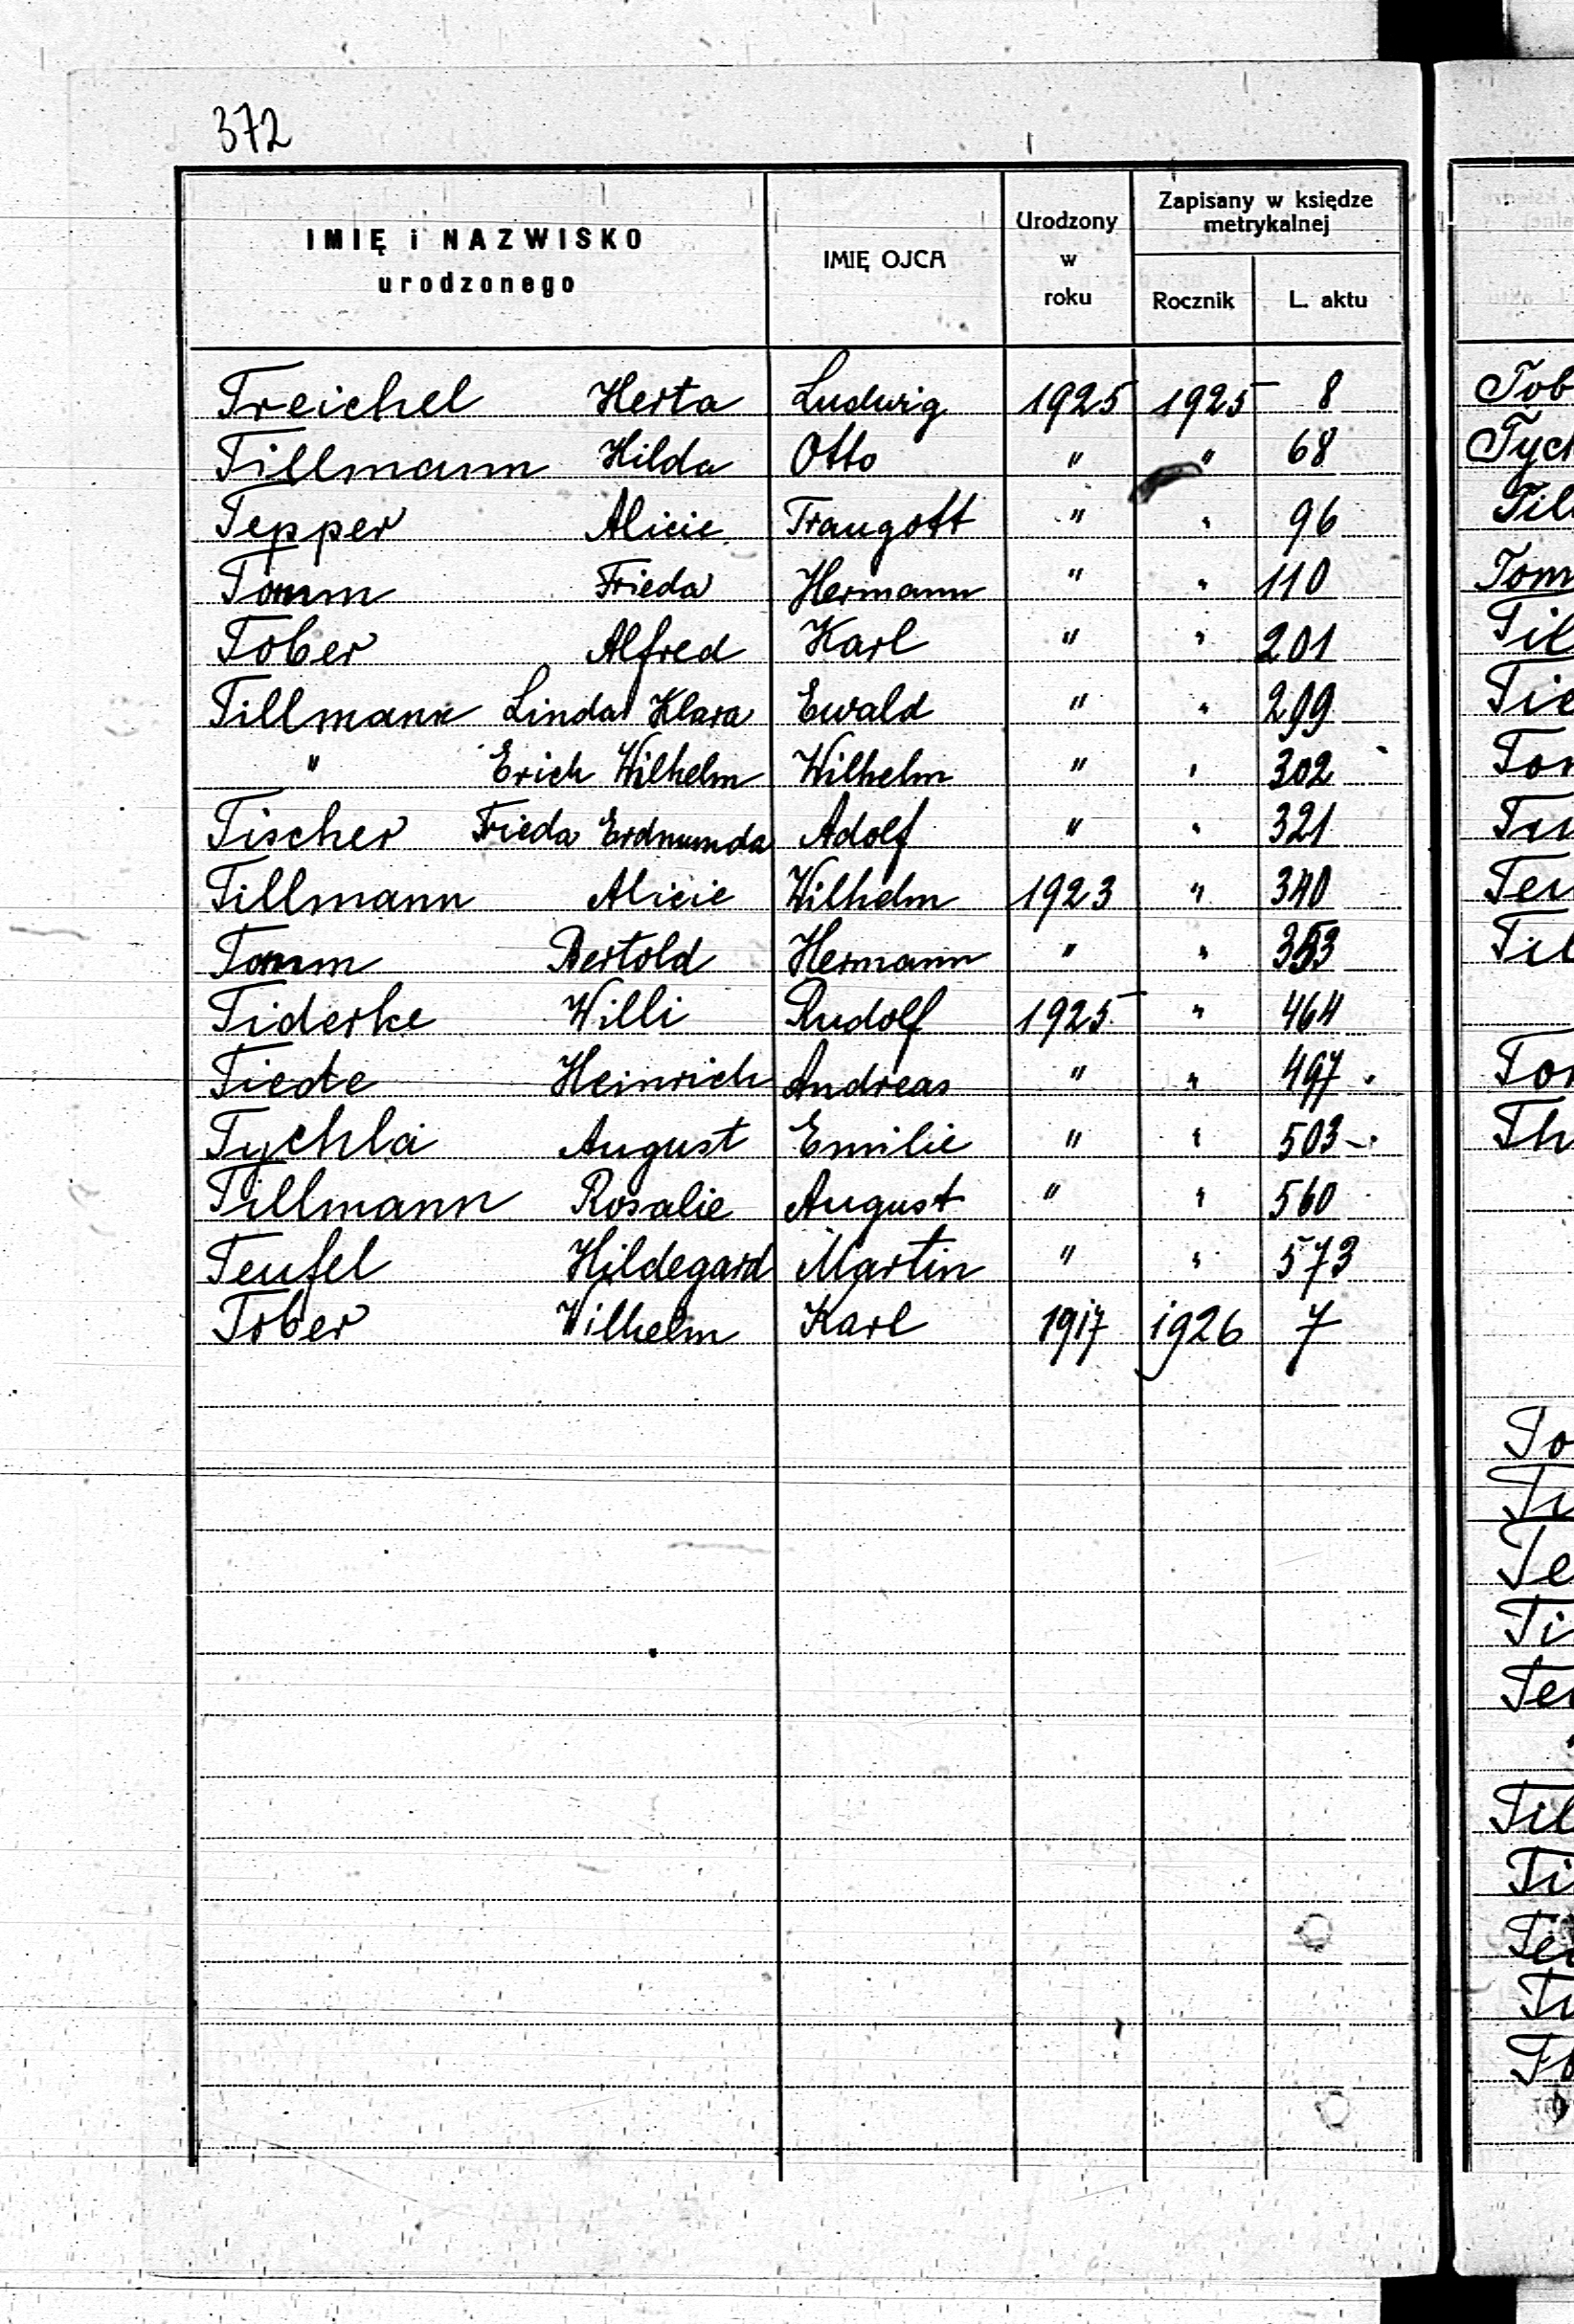 372
IMIĘ i NAZWISKO urodzonego IMIĘ OJCA Urodzony w roku Zapisany w księdze metrykalnej Rocznik L. aktu
Treichel Herta Ludwig 1925 1925 8
Tillmann Hilda Otto " " 68
Tepper Alicie Traugott " " 96
Tomm Frieda Hermann " " 110
Tober Alfred Karl " " 201
Tillmann Linda Klara Ewald " " 299
" Erich Wilhelm Wilhelm " " 302
Tischer Frieda Erdmunda Adolf " " 321
Tillmann Alicie Wilhelm 1923 " 340
Tomm Bertold Hermann " " 353
Tiderke Willi Rudolf 1925 " 464
Tiede Heinrich Andreas " " 497
Tychla August Emilie " " 503
Tillmann Rosalie August " " 560
Teufel Hildegard Martin " " 573
Tober Wilhelm Karl 1917 1926 7